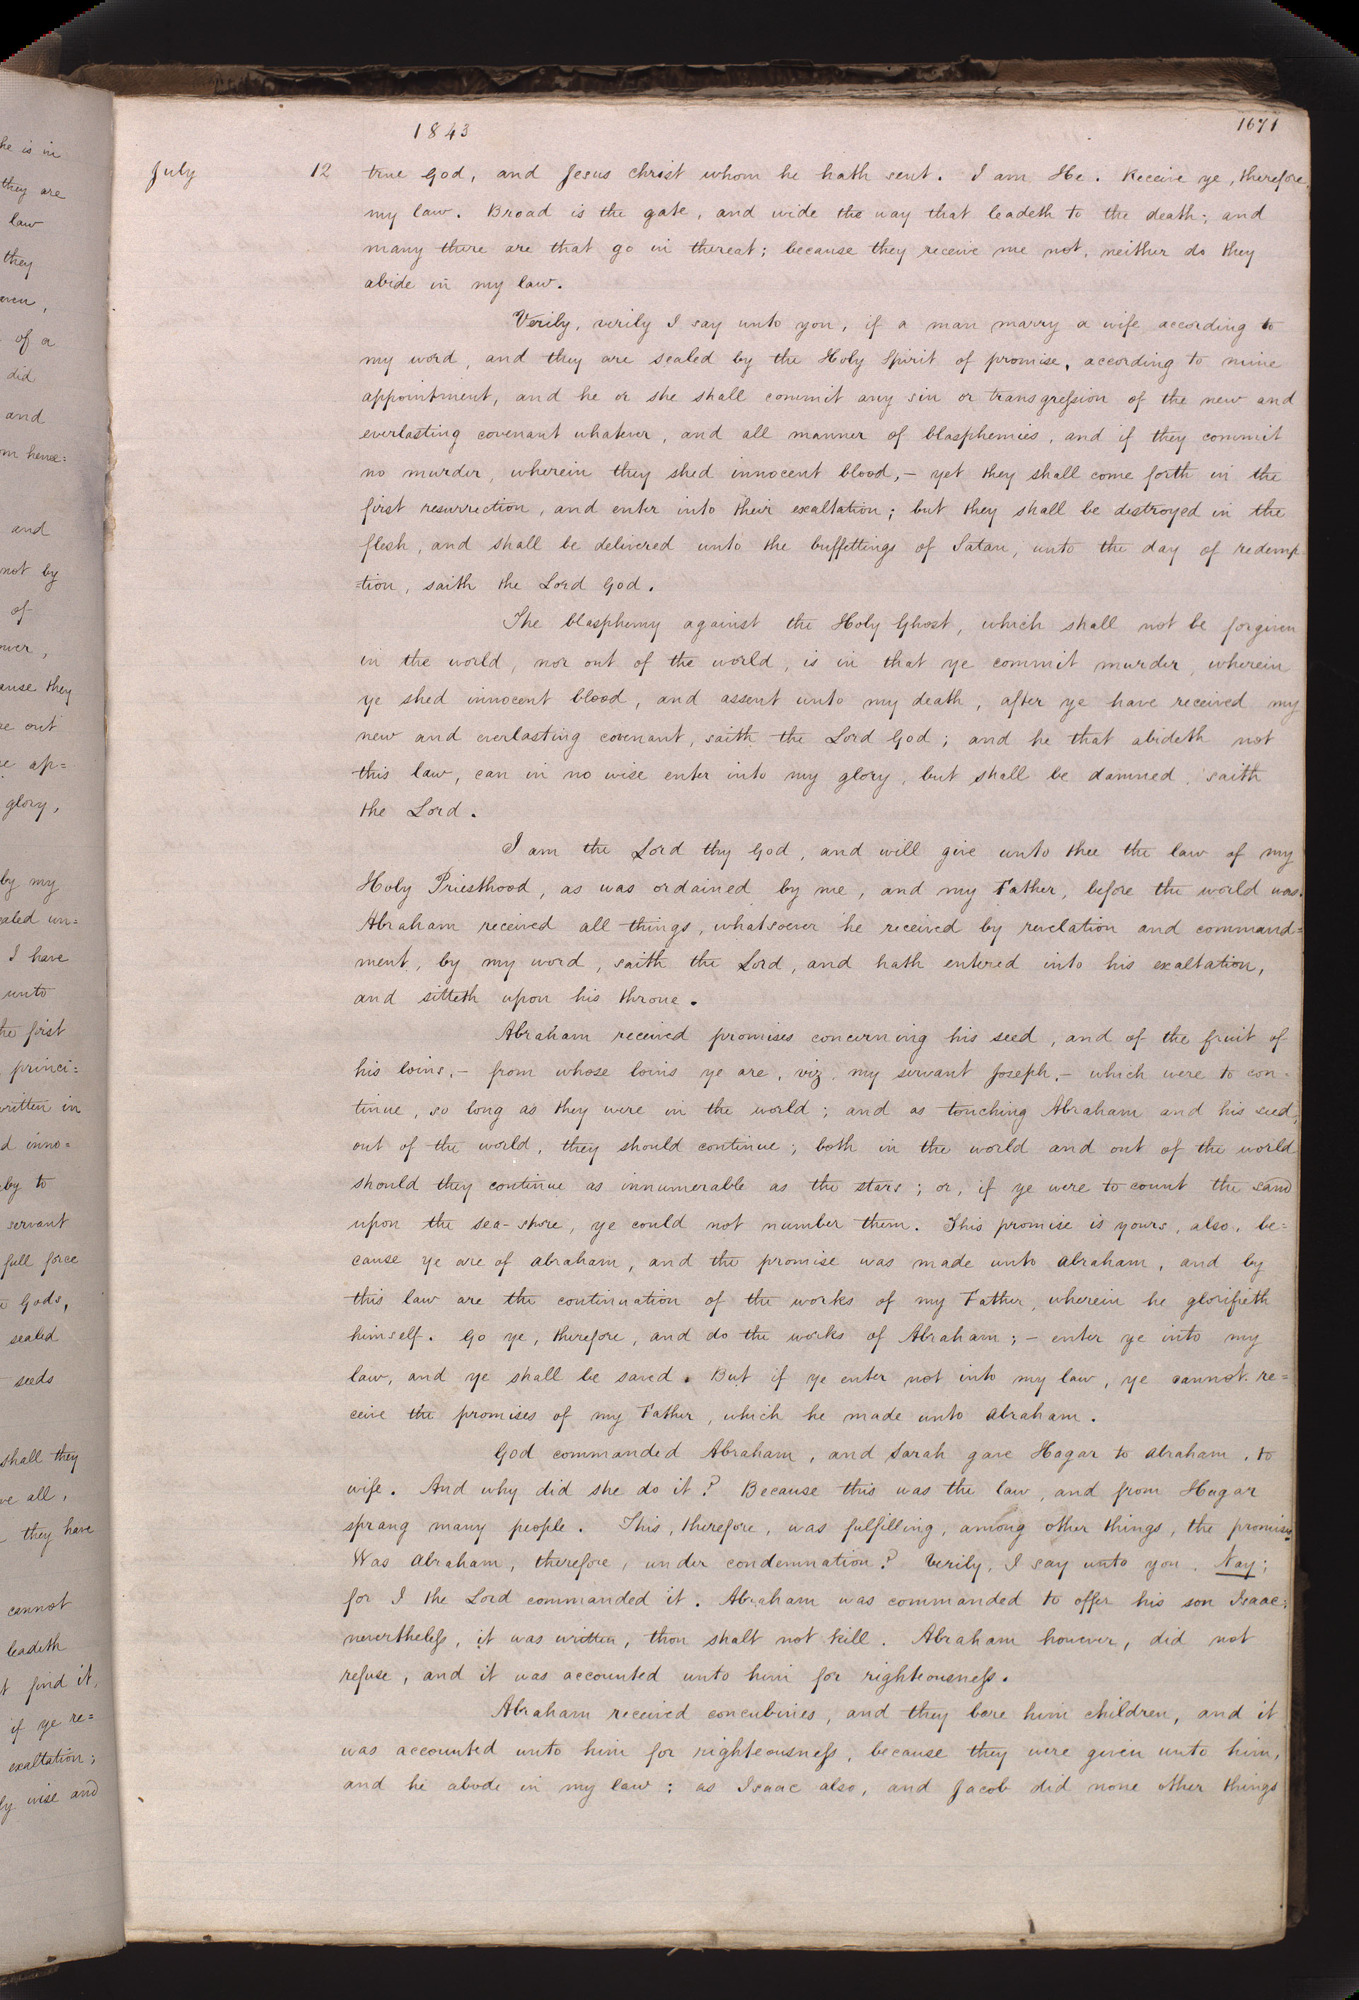 he is in
they are
law
they
of a
did
and
and
not by
of
ause they
out
ap=
glory,
by my
I have
unto
first
princi=
written in
inno=
by to
servant
full force
Gods,
sealed
seeds
shall they
all,
they have
cannot
leadeth
find it,
if ye re=
exaltation;
wise and
1843 1671
July 12 true God, and Jesus christ whom he hath sent. I am He. Receive ye, therefore,
my law. Broad is the gate, and wide the way that leadeth to the death; and
many there are that go in thereat; because they receive me not, neither do they
abide in my law.
Verily, verily I say unto you, if a man marry a wife according to
my word, and they are sealed by the Holy Spirit of promise, according to mine
appointment, and he or she shall commit any sin or transgression of the new and
everlasting covenant whatever, and all manner of blasphemies, and if they commit
no murder, wherein they shed innocent blood,— yet they shall come forth in the
first resurrection, and enter into their exaltation; but they shall be destroyed in the
flesh, and shall be delivered unto the buffettings of Satan, unto the day of redemp
=tion, saith the Lord God.
The blasphemy against the Holy Ghost, which shall not be forgiven
in the world, nor out of the world, is in that ye commit murder, wherein
ye shed innocent blood, and assent unto my death, after ye have received my
new and everlasting covenant, saith the Lord God; and he that abideth not
this law, can in no wise enter into my glory, but shall be damned, saith
the Lord.
I am the Lord thy God, and will give unto thee the law of my
Holy Priesthood, as was ordained by me, and my Father, before the world was.
Abraham received all things, whatsoever he received by revelation and command=
ment, by my word, saith the Lord, and hath entered into his exaltation,
and sitteth upon his throne.
Abraham received promises concerning his seed, and of the fruit of
his loins,— from whose loins ye are, viz, my servant Joseph,— which were to con-
tinue, so long as they were in the world; and as touching Abraham and his seed,
out of the world, they should continue; both in the world and out of the world
should they continue as innumerable as the stars; or, if ye were to count the sand
upon the sea-shore, ye could not number them. This promise is yours, also, be=
cause ye are of abraham, and the promise was made unto abraham, and by
this law are the continuation of the works of my Father, wherein he glorifieth
himself. Go ye, therefore, and do the works of Abraham;— enter ye into my
law, and ye shall be saved. But if ye enter not into my law, ye cannot re=
ceive the promises of my Father, which he made unto abraham.
God commanded Abraham, and Sarah gave Hagar to abraham, to
wife. And why did she do it? Because this was the law, and from Hagar
sprang many people. This, therefore, was fulfilling, among other things, the promises
Was abraham, therefore, under condemnation? Verily, I say unto you. Nay;
for I the Lord commanded it. Abraham was commanded to offer his son Isaac;
nevertheless, it was written, thou shalt not kill. Abraham however, did not
refuse, and it was accounted unto him for righteousness.
Abraham received concubines, and they bore him children, and it
was accounted unto him for righteousness, because they were given unto him,
and he abode in my law; as Isaac also, and Jacob did none other things